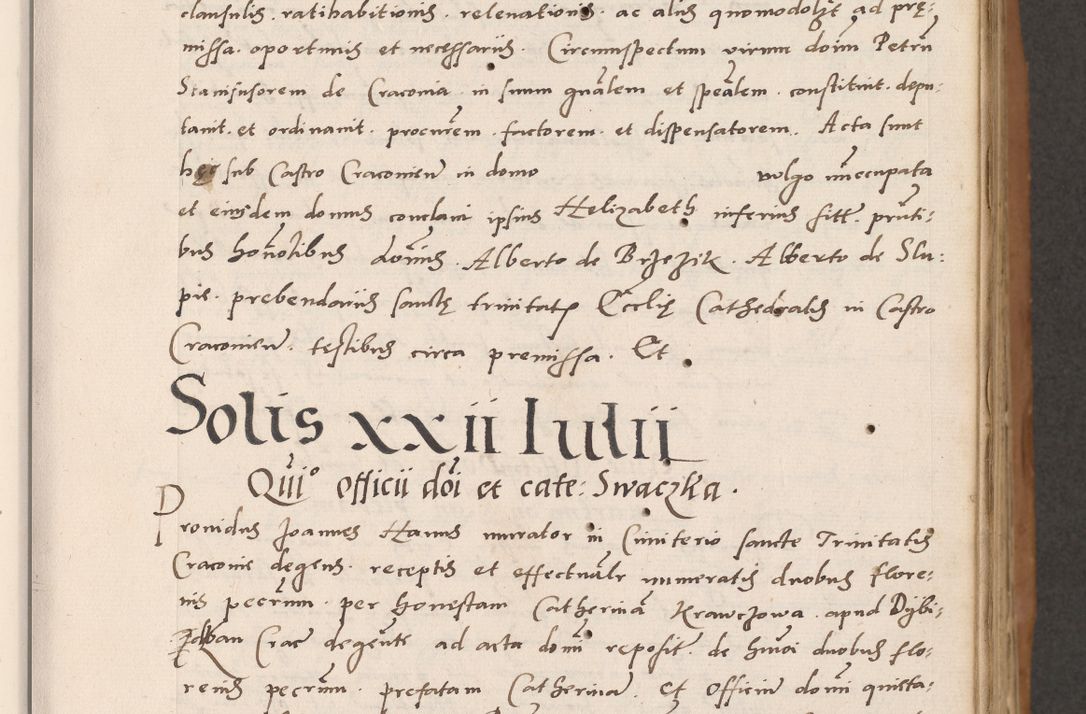 clausulis . ratihabitionis . relevationis . ac aliis quomodolzt ad prę:
missa . oportunis et necessariis . Circumspectum virum doim Petrũ
Stanifusorem de Cracovia in suum gnãlem et speãlem . constituit . depu:
tavit . et ordinavit . procurem . factorem . et dispensatorem . Acta sunt
hęc sub Castro Cracovien in domo vulgo nuncupata
et eiusdem domus conclavi ipsius Helizabeth inferius sitt . prnti:
bus honolibus dominis . Alberto de Brzezik . Alberto de Slu:
pie . prebendariis sanctę trinitatis Ecclię Cathedralis in Castro
Cracovien . testibus circa premissa . Et
Solis xxii Iulii
Quito officii doi et cate: Swaczka .
Providus Joannes Hanus murator in Cimiterio sancte Trinitatis
Cracovie degens . receptis et effectualr numeratis duobus flore:
nis pecunm . per honestam Catherinã Krawczowa . apud Dzbi:
zdban Crac degente ad acta domi reposit . de huioi duobus flo:
renis pecunm . prefatam Catherinã . et officium domi quieta: